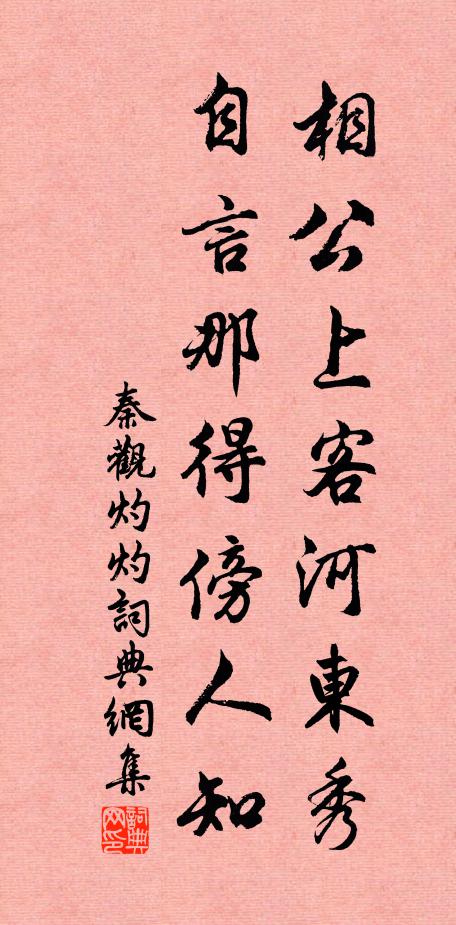 相公上客河東秀
自言那得傍人知
秦觀灼灼詞典網集
詞典网印